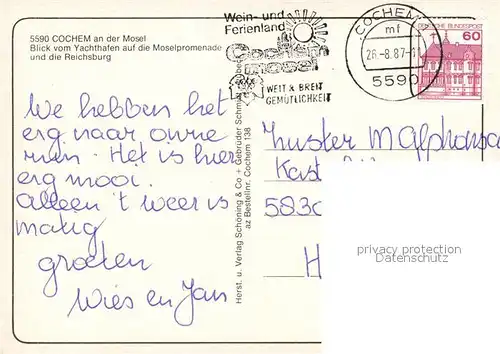 5590 COCHEM an der Mosel
Blick vom Yachthafen auf die Moselpromenade
und die Reichsburg
Wein- und
Ferienland
Cochem
Mosel
WEIT & BREIT
GEMÜTLICHKEIT
COCHEM
mf
26.-8.87-
5590
DEUTSCHE BUNDESPOST
60
We hebben het
erg naar onze
zin. Het is hier
erg mooi.
alleen 't weer is
matig
groeten
Wies en Jan
Herst. u. Verlag Schöning & Co + Gebrüder Schmidt
az Bestellnr. Cochem 138
Zuster M Alphonsa
Kast
5830
H
privacy protection
DATENSCHUTZ